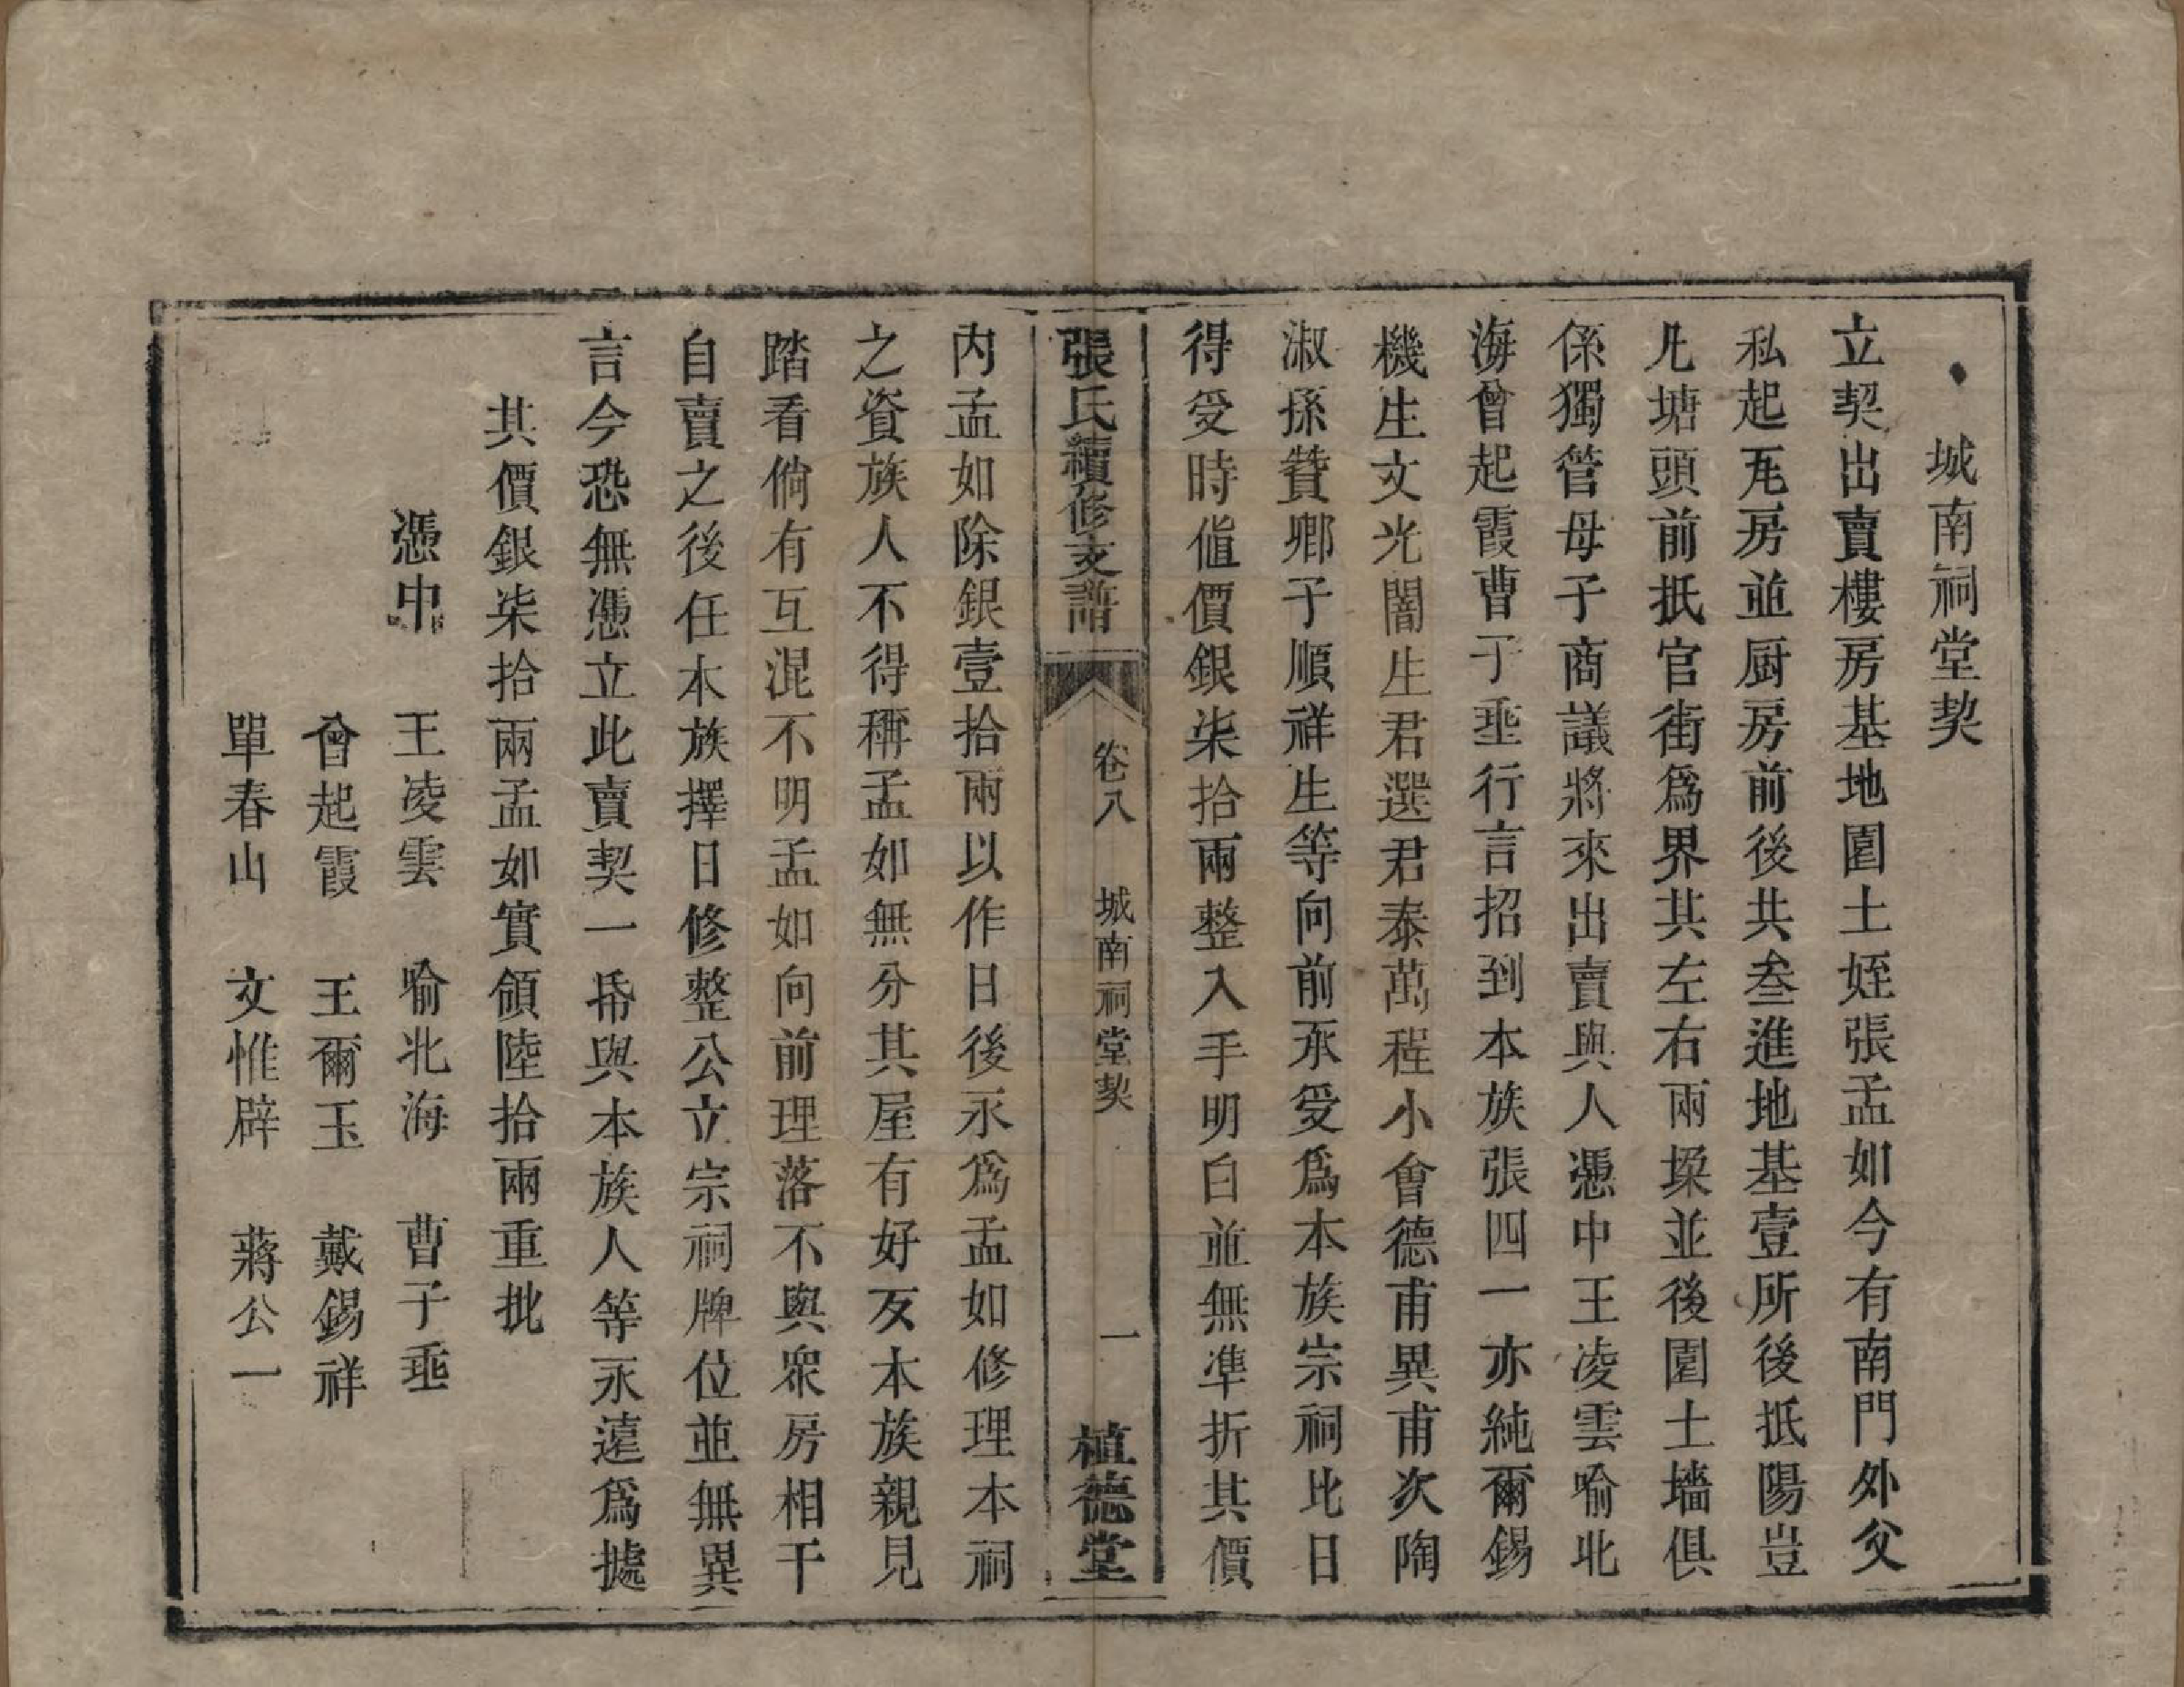 城南祠堂契
立契出賣樓房基地園土姪張孟如今有南門外父
私起瓦房並厨房前後共叁進地基壹所後抵陽岂
凡塘頭前抵官街爲界其左右兩垜並後園土墻俱
係獨管母子商議將來出賣與人憑中王凌雲喻北
海曾起霞曹子垂行言招到本族張四一亦純爾錫
機生文光闇生君選君泰萬程小會德甫異甫次陶
淑孫贊鄉子順祥生等向前承受爲本族宗祠比日
得受時値價銀柒拾兩整入手明白並無凖折其價
張氏續修支譜 卷八 城南祠堂契 一 植德堂
内孟如除銀壹拾兩以作日後永爲孟如修理本祠
之資族人不得稱孟如無分其屋有好歹本族親見
踏看倘有互混不明孟如向前理落不與衆房相干
自賣之後任本族擇日修整公立宗祠牌位並無異
言今恐無憑立此賣契一帋與本族人等永遠爲據
其價銀柒拾兩孟如實領陸拾兩重批
憑中 王凌雲 喻北海 曹子垂
曾起霞 王爾玉 戴錫祥
單春山 文惟辟 蔣公一